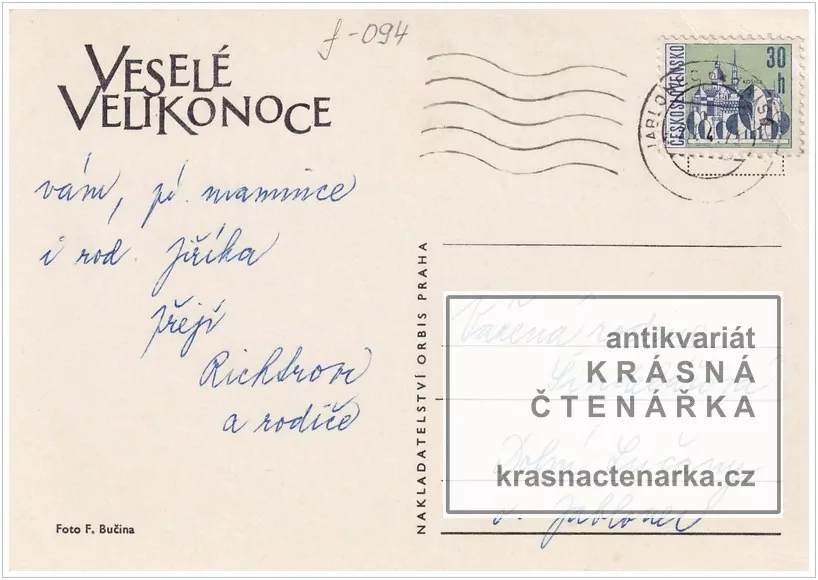 f-094
VESELÉ
VELIKONOCE
vám, pí. mamince
i rod. Jiříka
přejí
Richtrovi
a rodiče
Foto F. Bučina
NAKLADATELSTVÍ ORBIS PRAHA
ČESKOSLOVENSKO
30
h
JABLO
Vážená rodina
antikvariát
KRÁSNÁ
ČTENÁŘKA
Dolní Lučany
krasnactenarka.cz